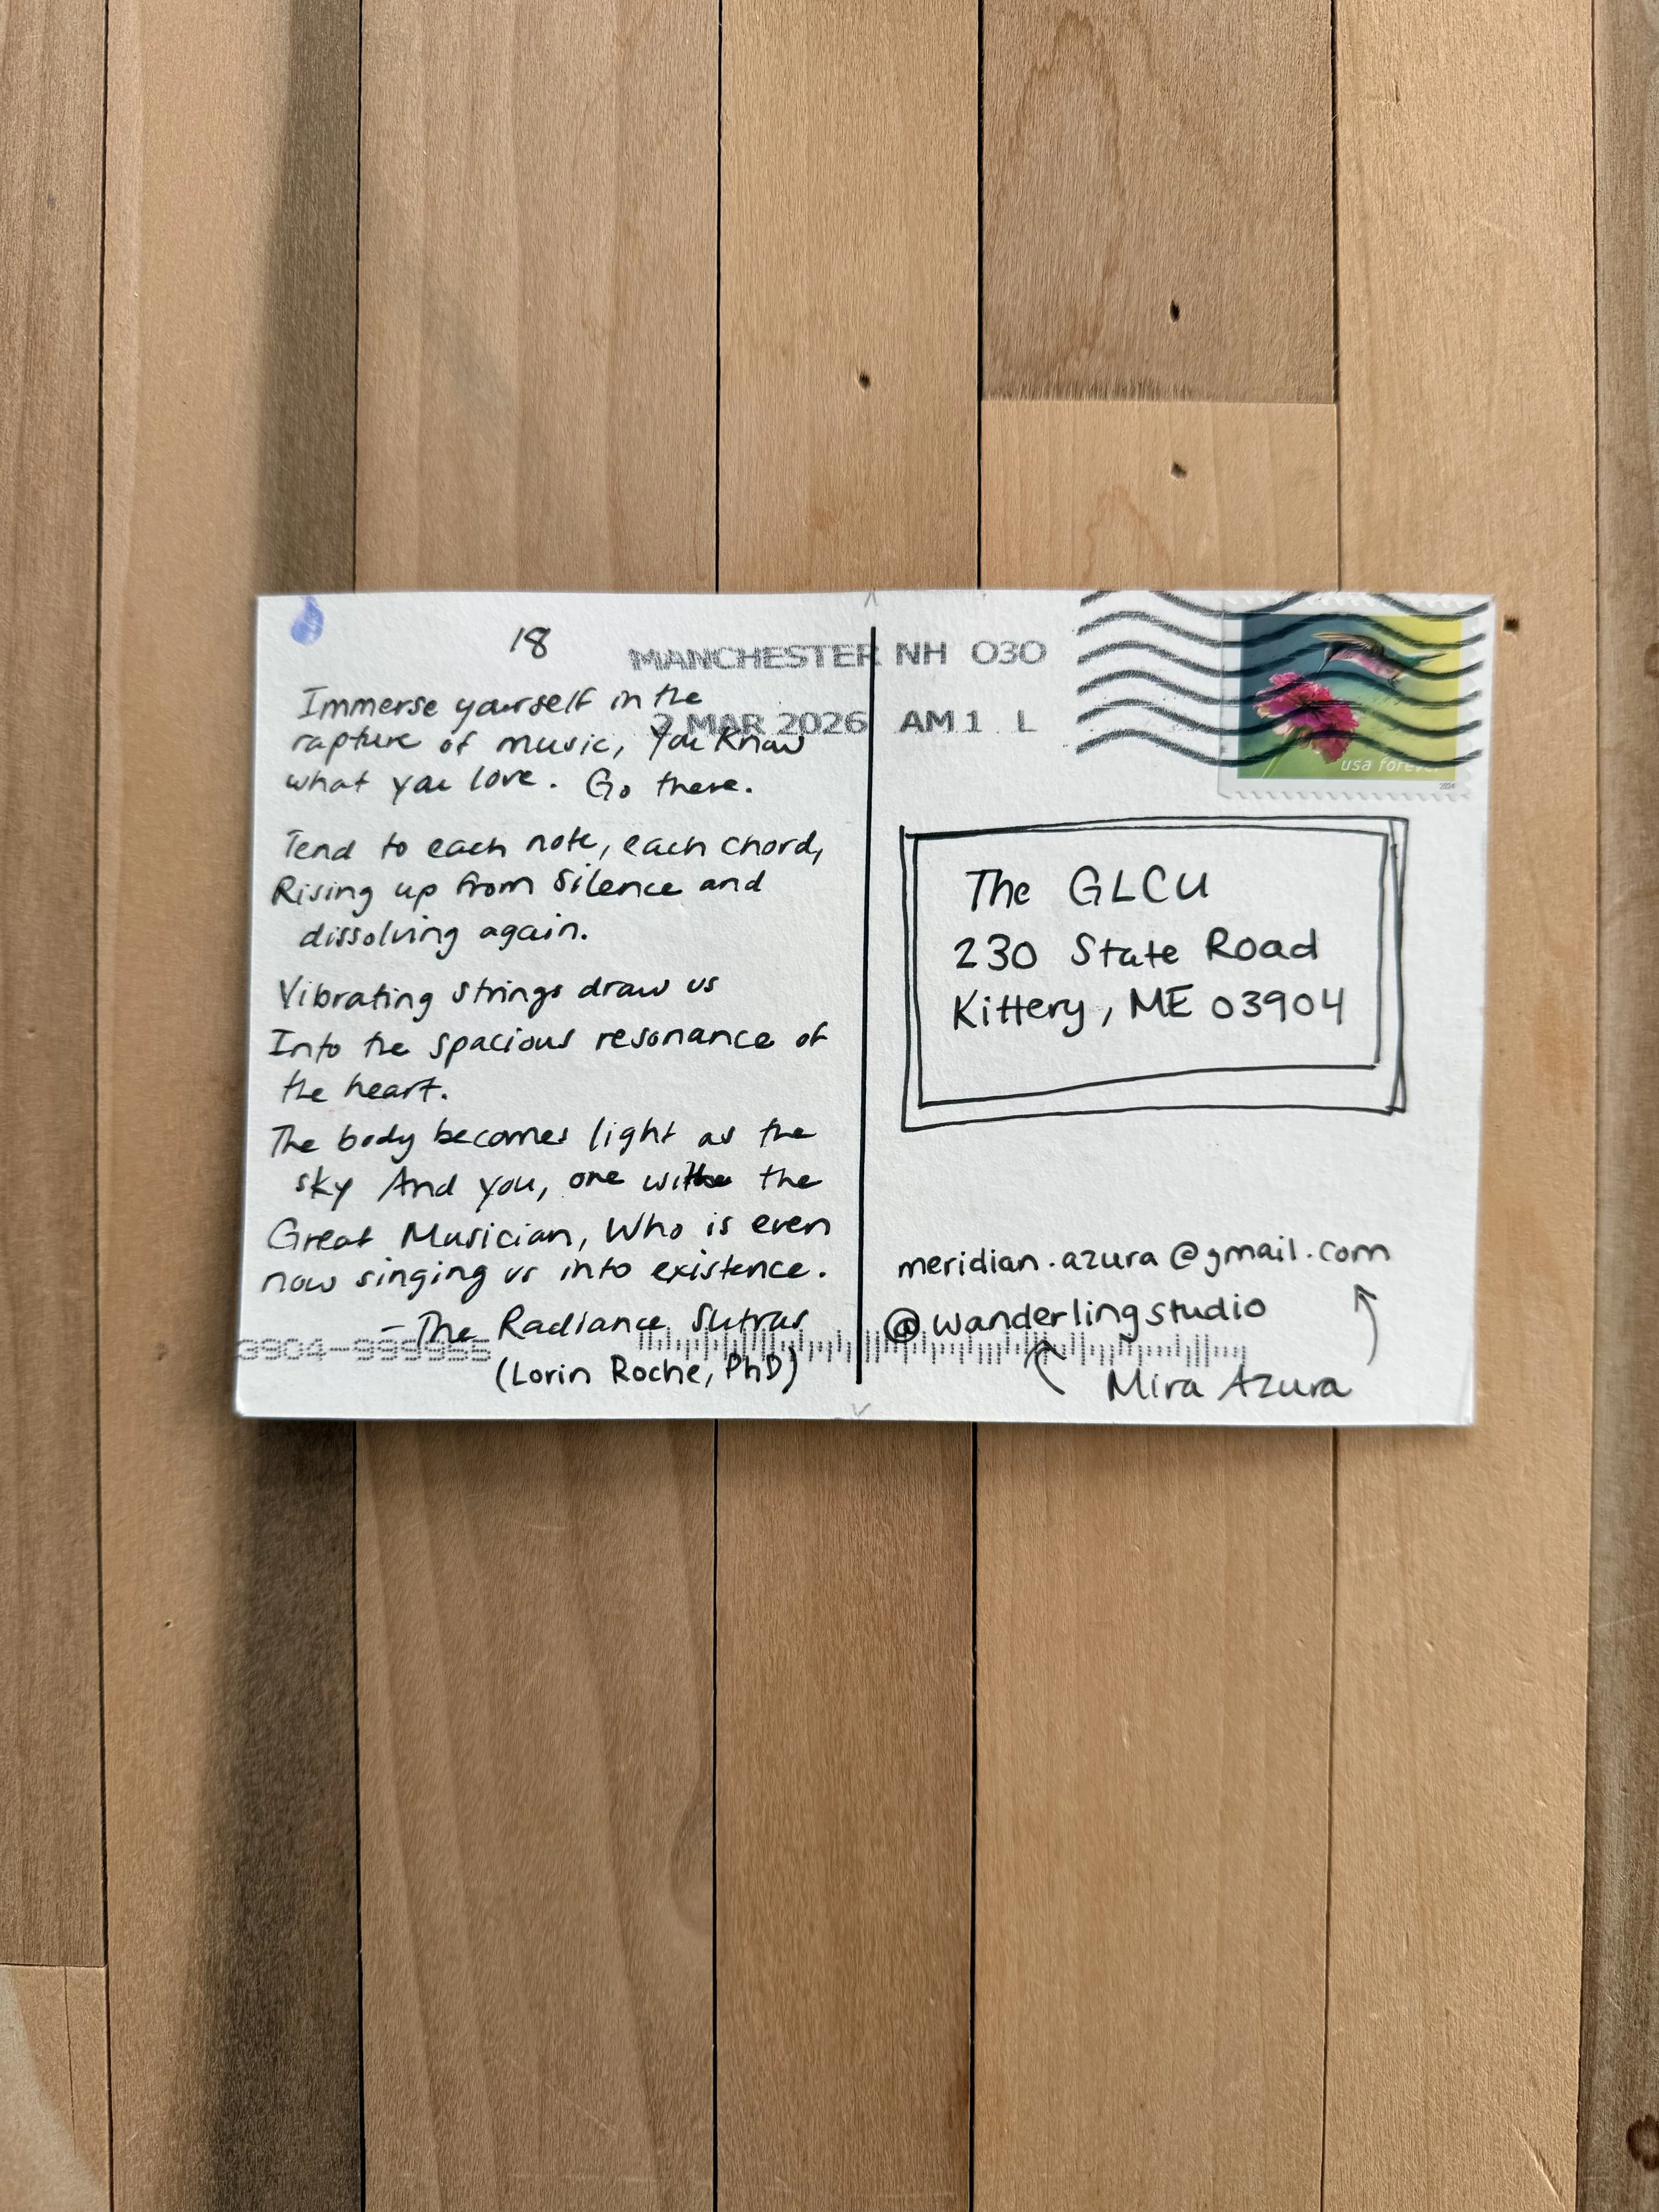 18
MANCHESTER NH 030
2 MAR 2026 AM 1 L
Immerse yourself in the
rapture of music, You know
what you love. Go there.
Tend to each note, each chord,
Rising up from Silence and
dissolving again.
Vibrating strings draw us
Into the spacious resonance of
the heart.
The body becomes light as the
sky And you, one with the
Great Musician, Who is even
now singing us into existence.
- The Radiance Sutras
(Lorin Roche, PhD)
3904-999955
usa forever
2024
The GLCU
230 State Road
Kittery, ME 03904
meridian.azura@gmail.com
@wanderlingstudio
Mira Azura